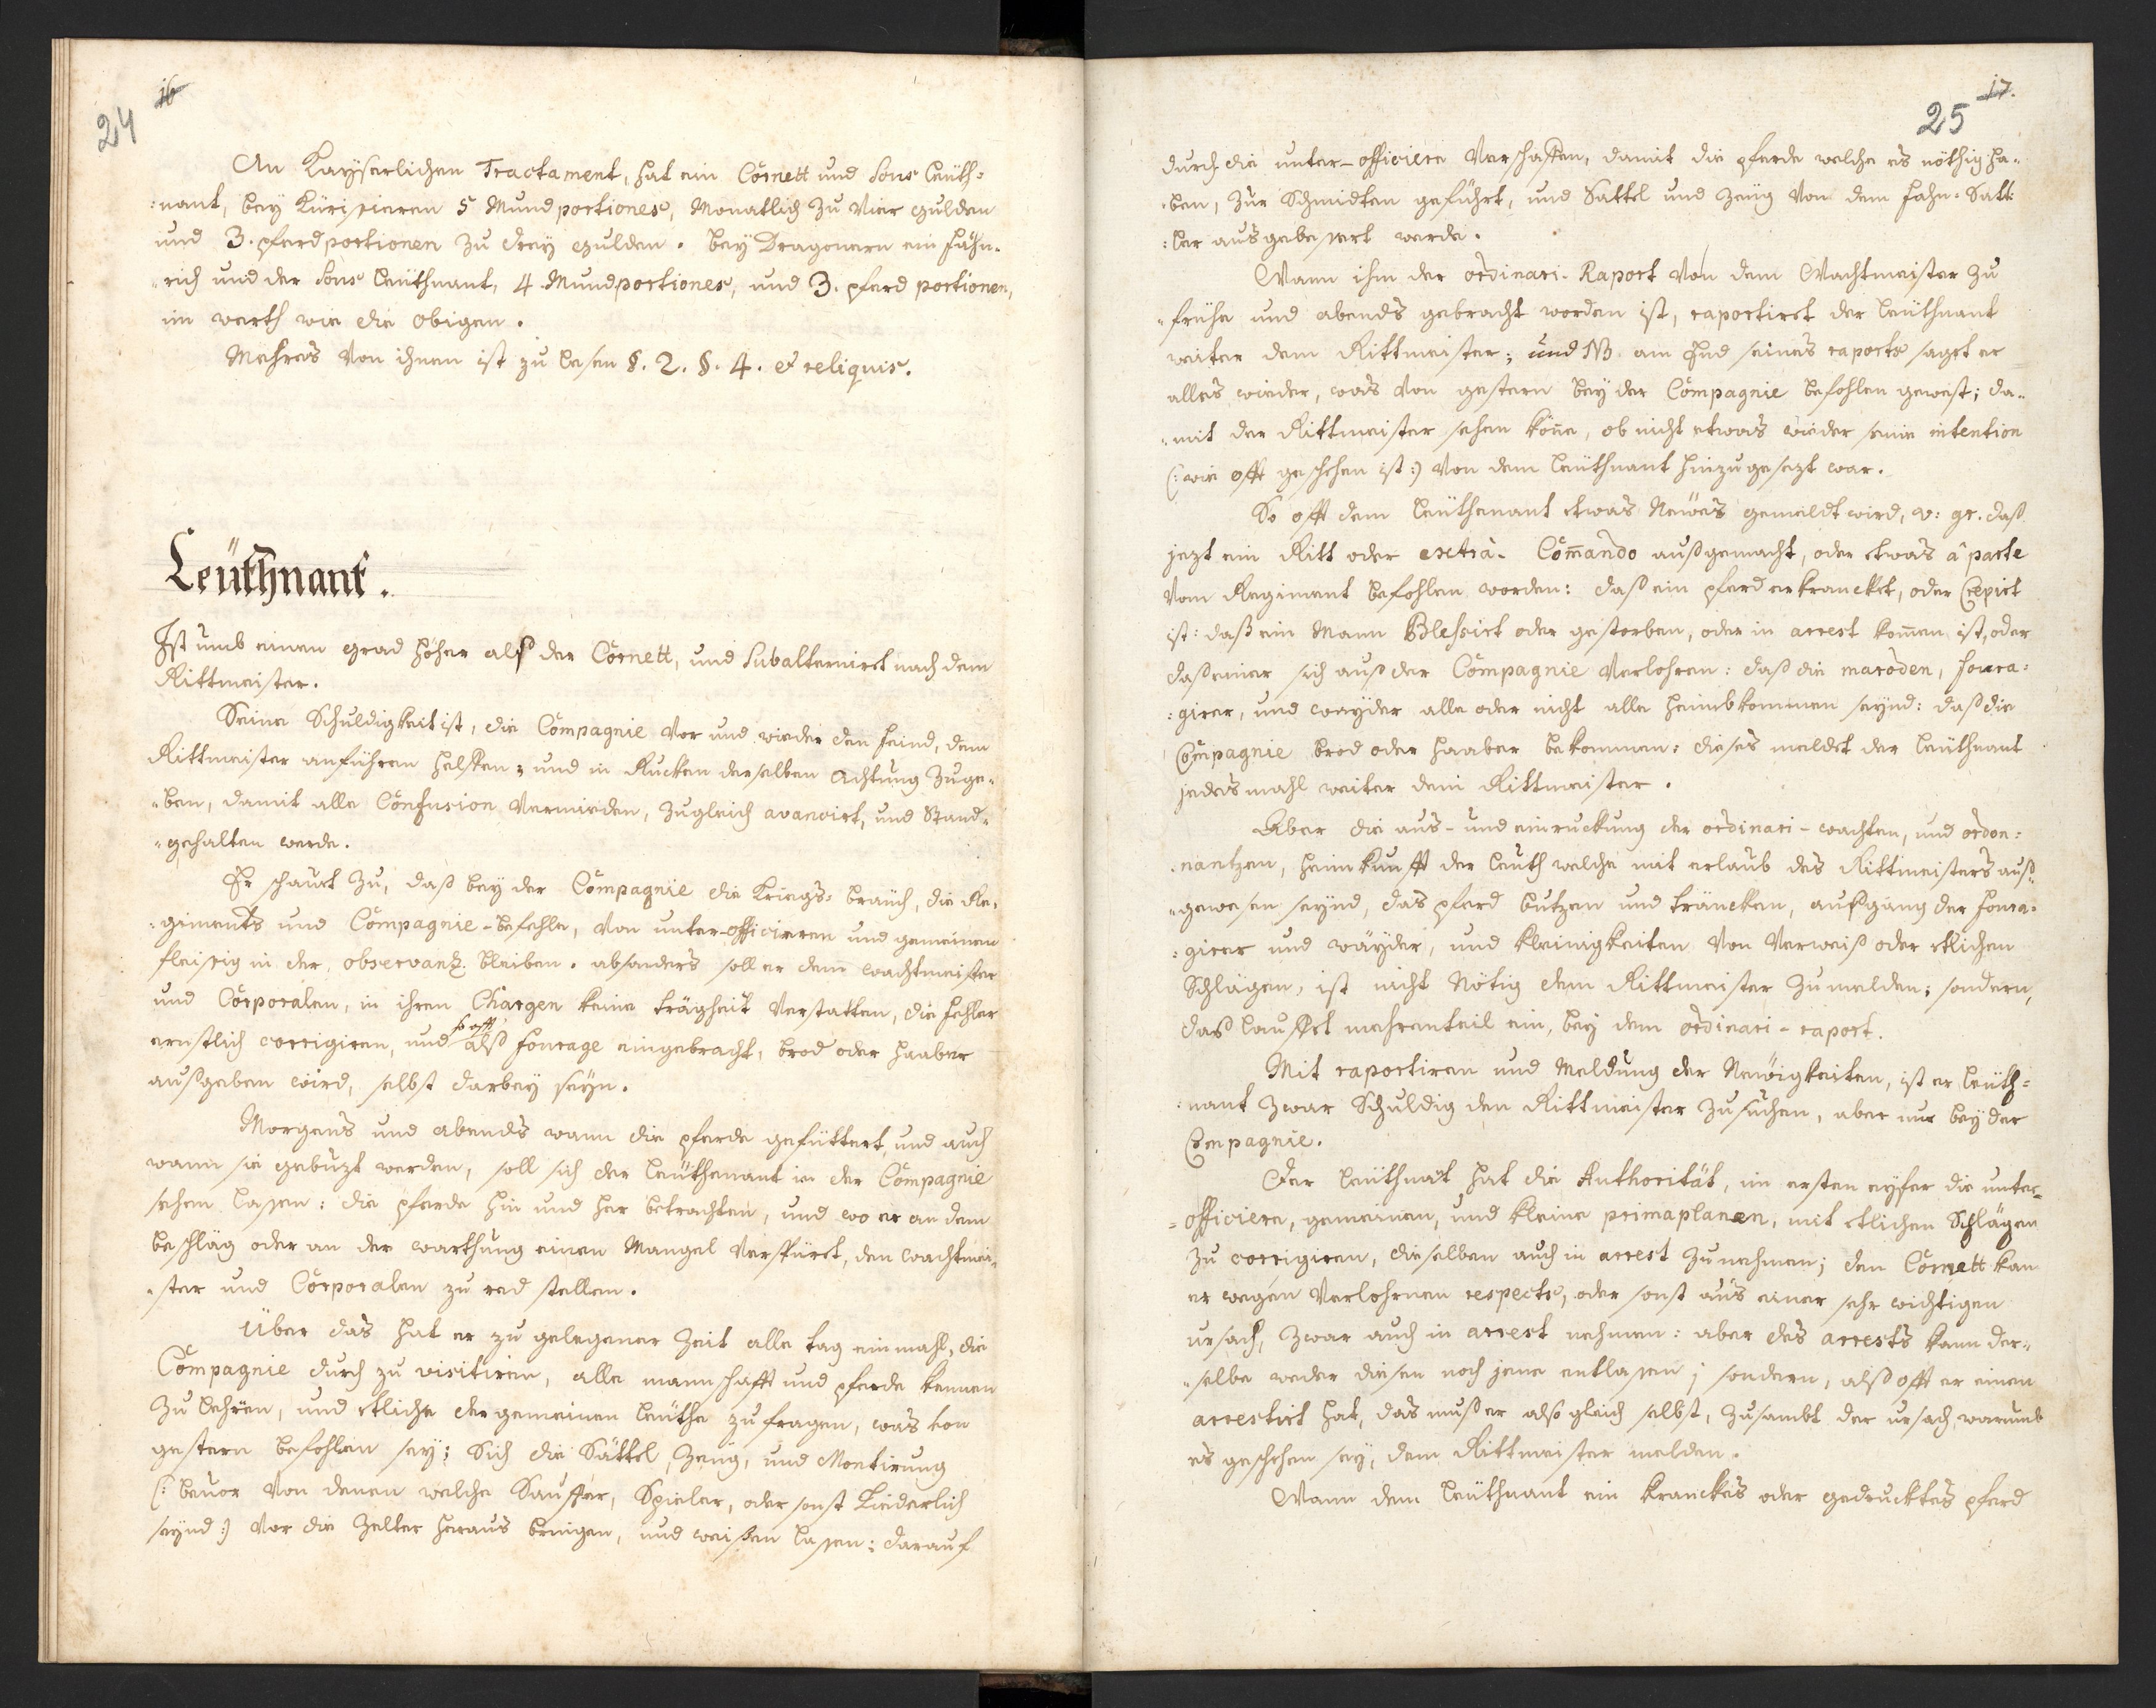 16
24
An Kayserlichen Tractament, hat ein Cornett und Sous leüth=
:nant, bey Kürisieren 5 Mund portiones, Monatlich zu Vier gulden
und 3. pferd portionen zu drey gulden. bey Dragonern ein Fähn-
rich und der Sous leüthnant, 4 Mundportiones, und 3. pferd portionen,
im werth wie die obigen.
Mehrers Von ihnen ist zu lesen §. 2. §. 4. et reliquis.
Leüthnant.
Ist umb einen grad höher alß der Cornett, und Subalternirt nach dem
Rittmeister.
Seine Schuldigkeit ist, die Compagnie Vor und wieder den feind, dem
Rittmeister anführen helffen; und in Rucken derselben Achtung zuge-
-ben, damit alle Confusion Vermieden, zugleich avancirt, und Stand-
-gehalten werde.
Er schauet zu, daß bey der Compagnie die Kriegs-bräuch, die Re-
:giments und Compagnie-befehle, Von unter-officieren und gemeinen
fleisig in der observantz bleiben. absonders soll er dem wachtmeister
und Corporalen, in ihren Chargen keine trägheit Verstatten, die fehler
ernstlich corrigiren, und so offt alß fourage eingebracht, brod oder haaber
außgeben wird, selbst darbey seyn.
Morgens und abends wann die pferde gefüttert, und auch
wann sie gebuzt werden, soll sich der leüthenant in der Compagnie
sehen lassen: die pferde hin und her betrachten, und wo er an dem
beschläg oder an der warthung einen Mangel Verspüret, den wachtmei-
-ster und Corporalen zu red stellen.
Über das hat er zu gelegener Zeit alle tag ein mahl, die
Compagnie durch zu visitiren, alle mannschafft und pferde kennen
zu lehren, und etliche der gemeinen leüthe zu fragen, was von
gestern befohlen sey; Sich die Sättel, Zeüg, und Montirung
(: bevor Von denen welche Sauffer, Spieler, oder sonst Liederlich
seynd :) Vor die Zelter heraus bringen, und weisen lassen; darauf
17.
25
durch die unter-officiere Verschaffen, damit die pferde welche es nöthig ha-
-ben, zur Schmidten geführt, und Sattel und Zeüg Von dem fahn-Satt-
:ler ausgebessert werde.
Wann ihm der ordinari-Raport Von dem Wachtmeister zu
frühe und abends gebracht worden ist, raportirt der leüthnant
weiter dem Rittmeister; und NB. am End seines raports saget er
alles wieder, was Von gestern bey der Compagnie befohlen gewest; da-
-mit der Rittmeister sehen köne, ob nicht etwas wieder seine intention
(: wie offt geschehen ist :) Von dem leüthnant hinzugesezt war.
So offt dem leüthenant etwas Neües gemeldt wird, v: gr. daß
jezt ein Ritt oder extra-Comando außgemacht, oder etwas à parte
Vom Regiment befohlen worden: daß ein pferd erkrancket, oder Crepirt
ist: daß ein Mann Blessirt oder gestorben, oder in arrest komen ist, oder
daß einer sich auß der Compagnie Verlohren: daß die maroden, foura-
:girer, und wayder alle oder nicht alle heimbkommen seynd: daß die
Compagnie brod oder haaber bekommen: dieses meldet der leüthnant
jedes mahl weiter dem Rittmeister.
Aber die aus- und einruckung der ordinari-wachten, und ordon:
nantzen, heimkunfft der leüth welche mit erlaub des Rittmeisters auß-
-gewesen seynd, das pferd butzen und träncken, außgang der foura-
:girer und wäyder, und kleinigkeiten Von Verweiß oder etlichen
Schlägen, ist nicht Nötig dem Rittmeister zu melden; sondern,
das lauffet mehrenteil ein, bey dem ordinari-raport.
Mit raportiren und Meldung der Neüigkeiten, ist er leüth=
:nant zwar Schuldig den Rittmeister zu suchen, aber nur bey der
Compagnie.
Der leüthnat hat die Authorität, im ersten eyfer die unter-
-officiere, gemeinen, und kleine primaplanen, mit etlichen Schlägen
zu corrigiren, dieselben auch in arrest zu nehmen; den Cornett kan
er wegen Verlohrnen respects, oder sonst aus einer sehr wichtigen
ursach, zwar auch in arrest nehmen: aber des arrests kann der-
-selbe weder diesen noch jene entlassen; sondern, alß offt er einen
arrestirt hat, das muß er also gleich selbst, zusambt der ursach, warumb
es geschehen sey, dem Rittmeister melden.
Wann dem leüthnant ein kranckes oder gedrucktes pferd